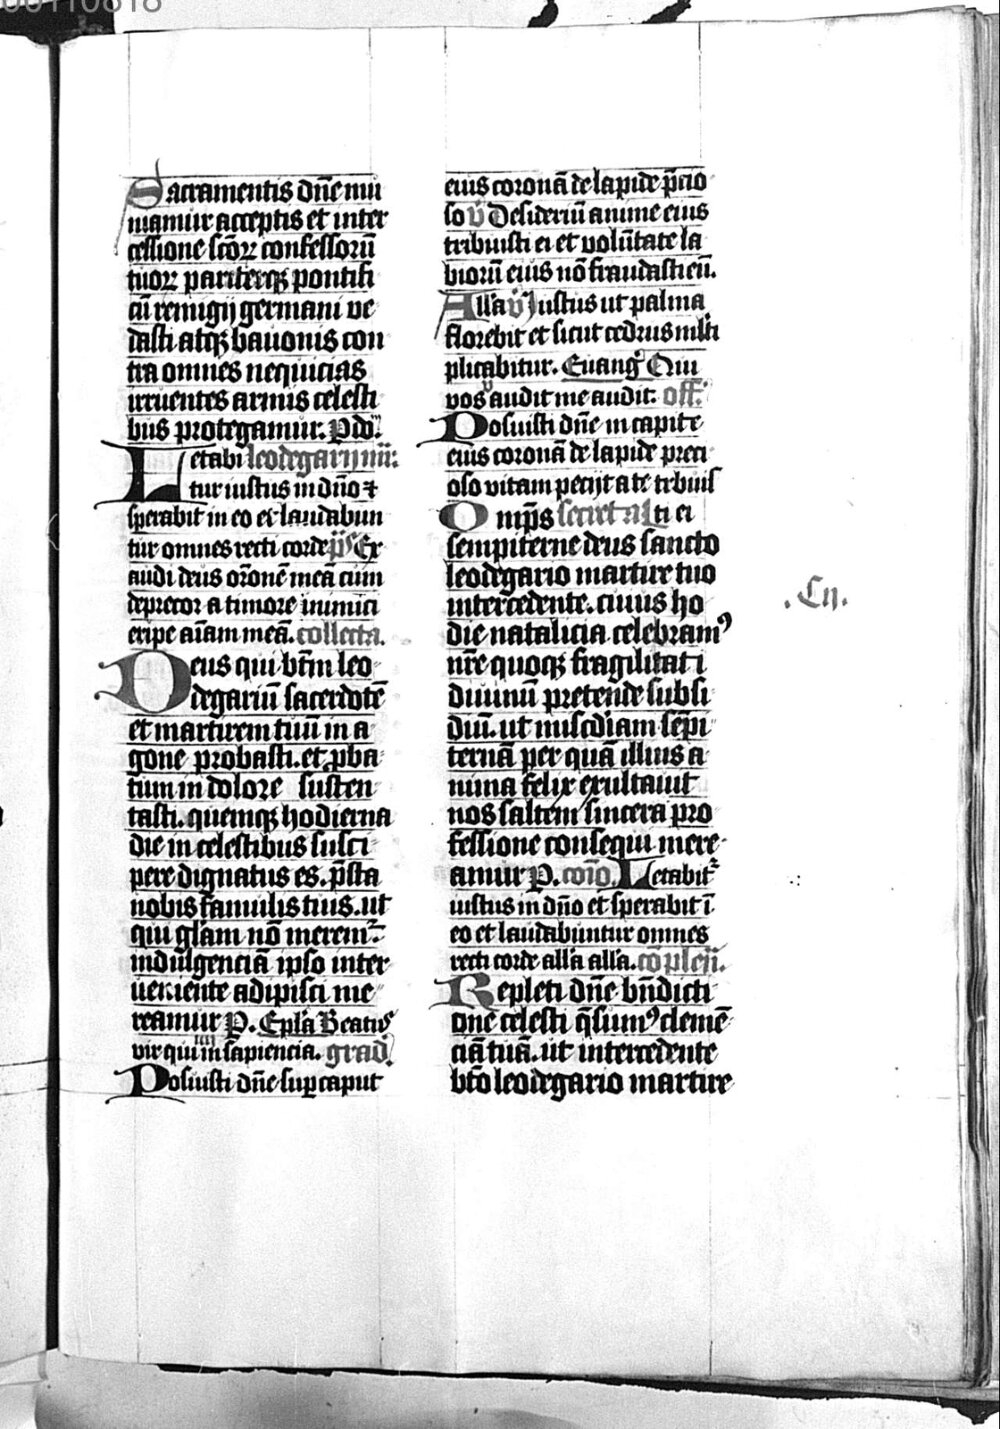 Sacramentis dn̄e mu
niamur acceptis et inter
cessione sc̄oꝝ confessorū
tuoꝝ pariterqꝫ pontifi
cū remigij germani ve
dasti atqꝫ bauonis con
tra omnes nequicias
irruentes armis celesti
bus protegamur. P do.
Letabi leodegarij m̄r.
tur iustus in dn̄o ⁊
sperabit in eo et laudabun
tur omnes recti corde p̄s Ex
audi deus or̄one meā cum
deprecor a timore inimici
eripe aīam meā. collecta.
Deus qui bt̄m leo
degariū sacerdotē
et martirem tuū in a
gone probasti. et ꝓba
tum in dolore susten
tasti. quemqꝫ hodierna
die in celestibus susci
pere dignatus es. p̄sta
nobis famulis tuis. ut
qui gl̄am nō merem̄
indulgenciā ipso inter
ueniente adipisci me
reamur P. Epl̄a Beatus
vir qui in sapiencia. grad̄
Posuisti dn̄e sup caput
eius coronā de lapide p̄cio
so v̄ Desideriū anime eius
tribuisti ei et volūtate la
biorū eius nō fraudasti eū.
All̄a v̄ Iustus ut palma
florebit et sicut cedrus ml̄ti
plicabitur. Euanḡ Qui
vos audit me audit. off̄.
Posuisti dn̄e in capite
eius coronā de lapide preci
oso vitam pecijt a te tribuis
Omp̄s secret al̄ ti ei
sempiterne deus sancto
leodegario martire tuo
intercedente. cuius ho
die natalicia celebramꝰ
nr̄e quoqꝫ fragilitati
diuinū pretende subsi
diū. ut mis̄cdiam sēpi
ternā per quā illius a
nima felix exultauit
nos saltem sincera pro
fessione consequi mere
amur P. com̄o. Letabit᷑
iustus in dn̄o et sperabit ī
eo et laudabuntur omnes
recti corde all̄a all̄a. cōplen̄.
Repleti dn̄e bn̄dicti
one celesti q̄sumꝰ clemē
ciā tuā. ut intercedente
bt̄o leodegario martire